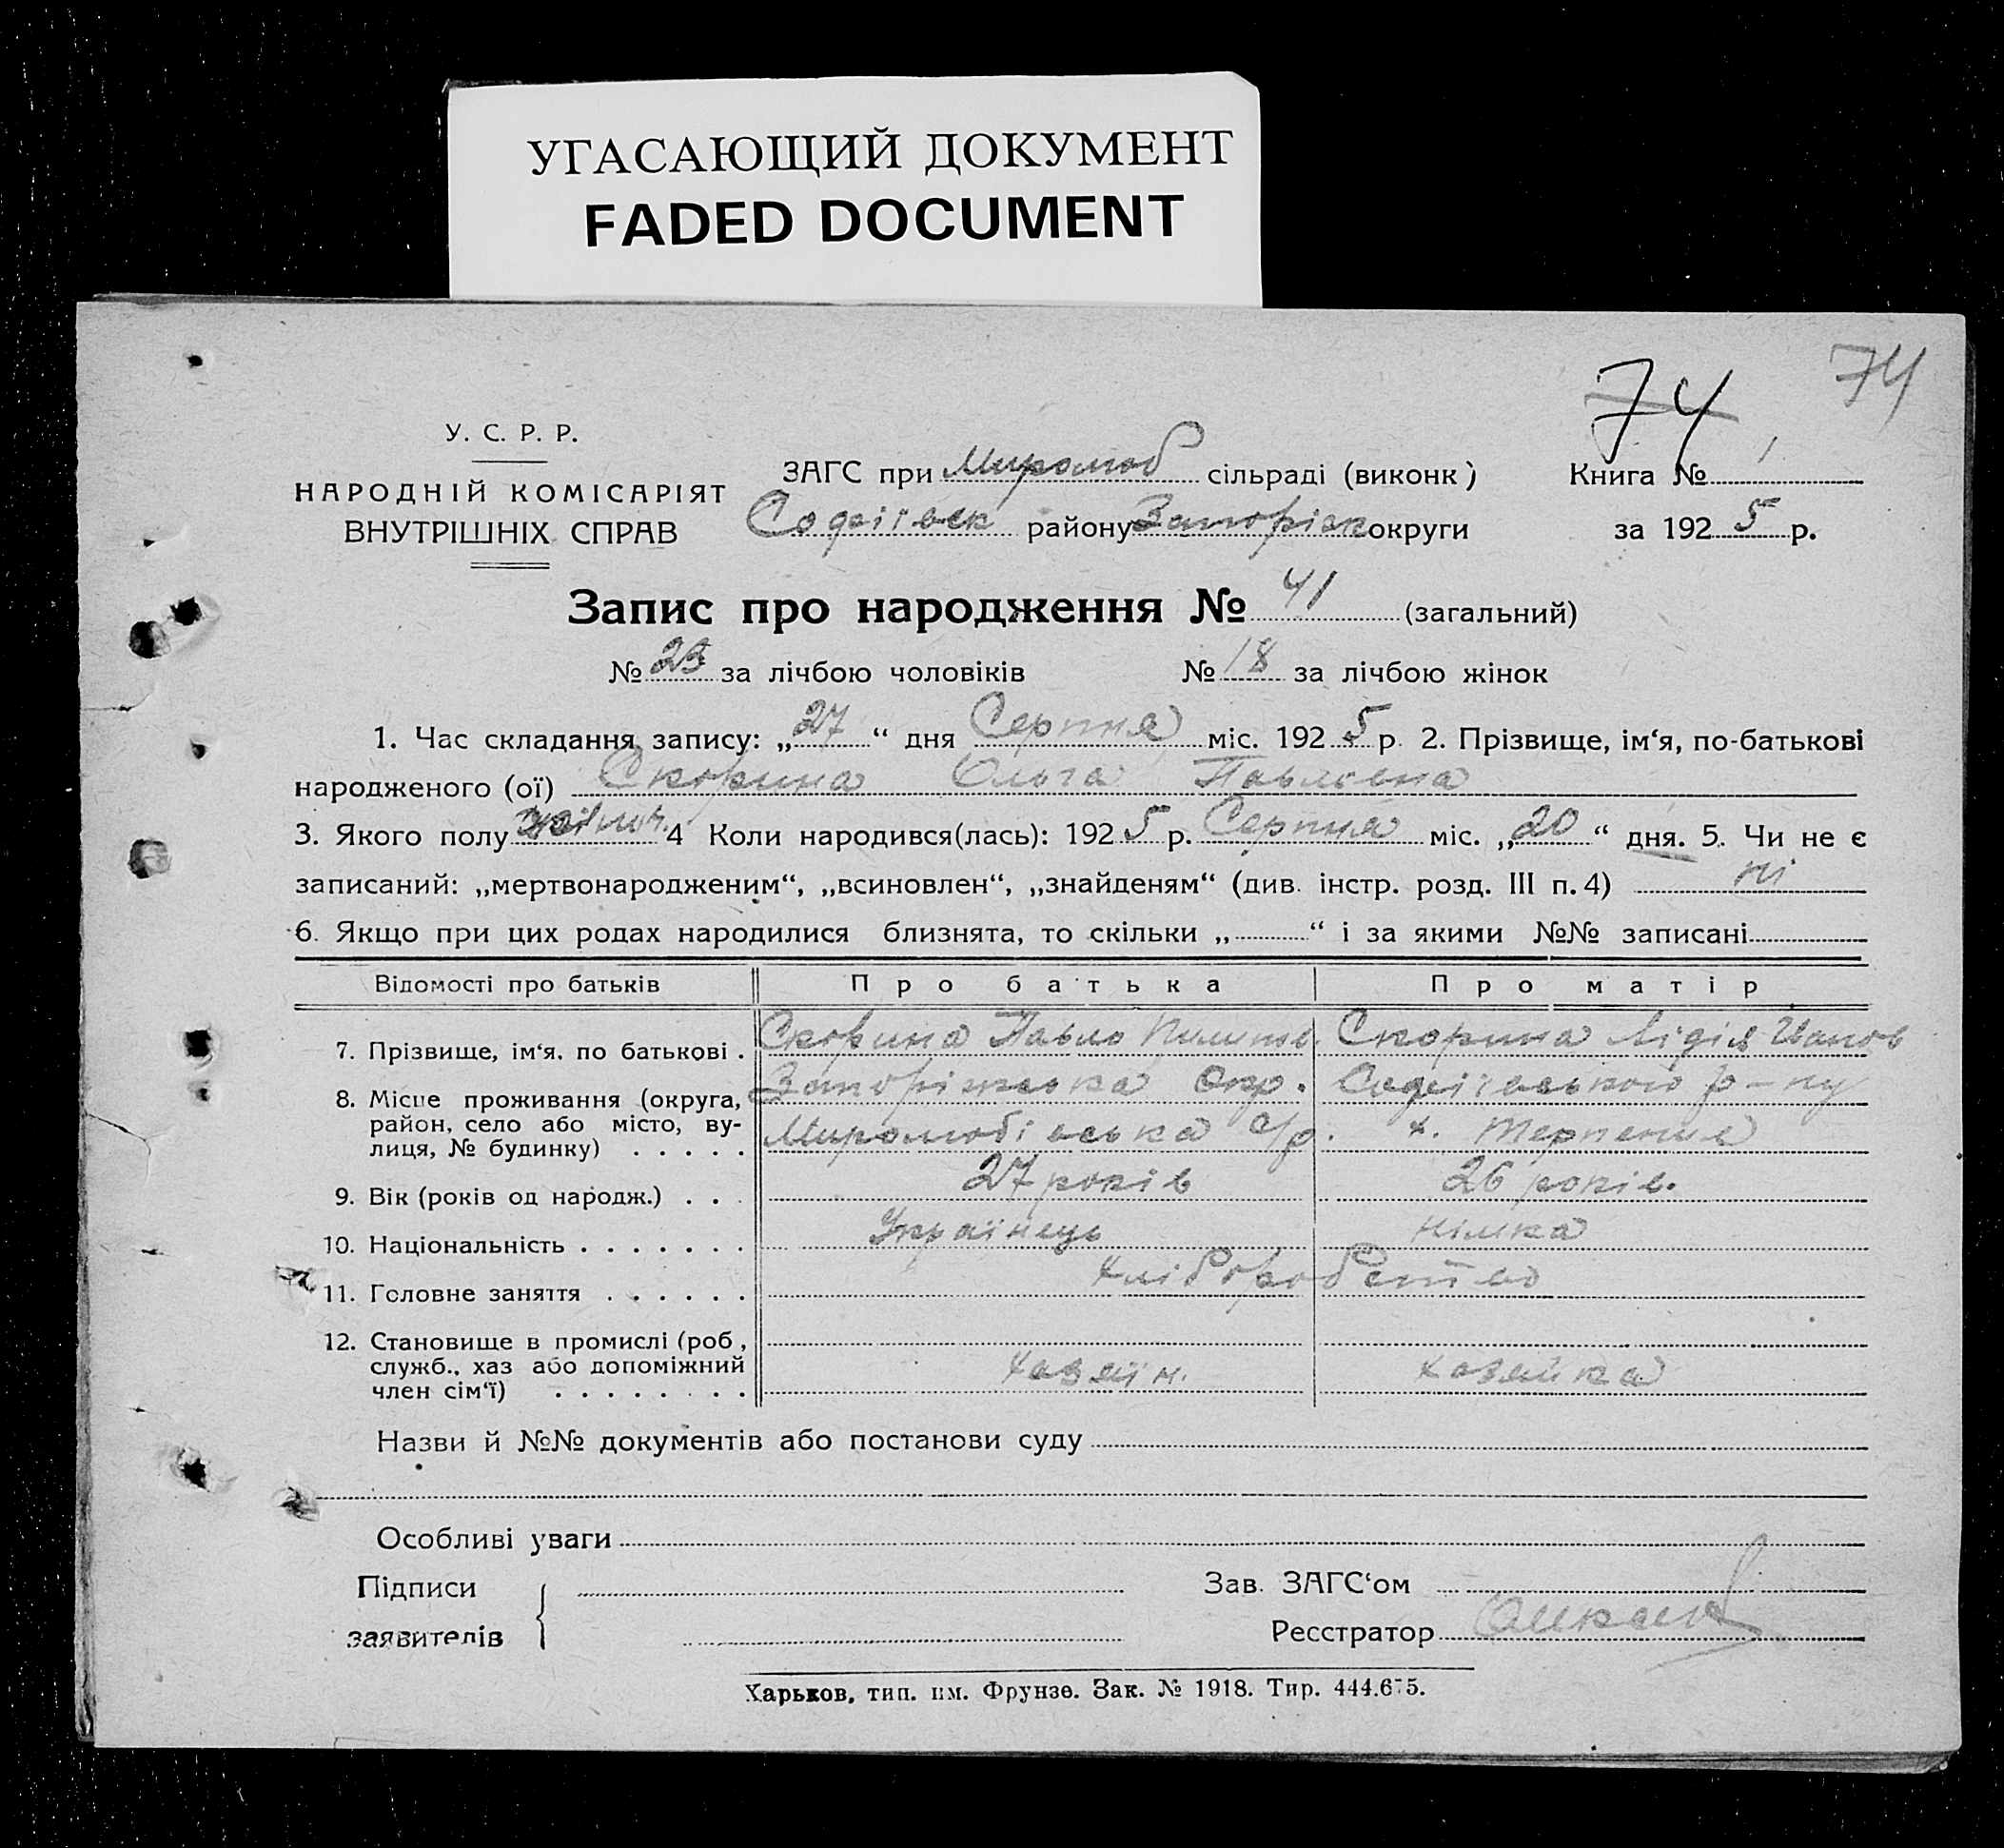 УГАСАЮЩИЙ ДОКУМЕНТ
FADED DOCUMENT
74 74
У. С. Р. Р.
НАРОДНІЙ КОМІСАРІЯТ
ВНУТРІШНІХ СПРАВ
ЗАГС при Миролюб сільраді (виконк) Книга № 1
Софіївск району Запоріж округи за 192 5 р.
Запис про народження № 41 (загальний)
№ 23 за лічбою чоловіків № 18 за лічбою жінок
1. Час складання запису: „27“ дня Серпня міс. 192 5 р. 2. Прізвище, ім‘я, по-батькові
народженого (ої) Скорина Ольга Павлівна
3. Якого полу жіноч. 4 Коли народився(лась): 192 5 р. Серпня міс. „20“ дня. 5. Чи не є
записаний: „мертвонародженим“, „всиновлен“, „знайденям“ (див. інстр. розд. III п. 4) ні
6. Якщо при цих родах народилися близнята, то скільки „ “ і за якими №№ записані
Відомості про батьків Про батька Про матір
7. Прізвище, ім‘я, по батькові . Скорина Павло Пилипов. Скорина Лідія Іванов
8. Місце проживання (округа, Запоріжська Окр. Софіївського р-ну
район, село або місто, ву- Миролюбівська с/р. х. Терпения
лиця, № будинку) . . . . .
9. Вік (років од народж.) . . . 27 років 26 років.
10. Національність . . . . . . . Українець німка
11. Головне заняття . . . . . . Хліборобство
12. Становище в промислі (роб.,
служб., хаз або допоміжний хазяїн. хазяйка
член сім‘ї) . . . . . . . .
Назви й №№ документів або постанови суду
Особливі уваги
Підписи Зав. ЗАГС‘ом
заявителів Реєстратор
Харьков, тип. им. Фрунзе. Зак. № 1918. Тир. 444.675.